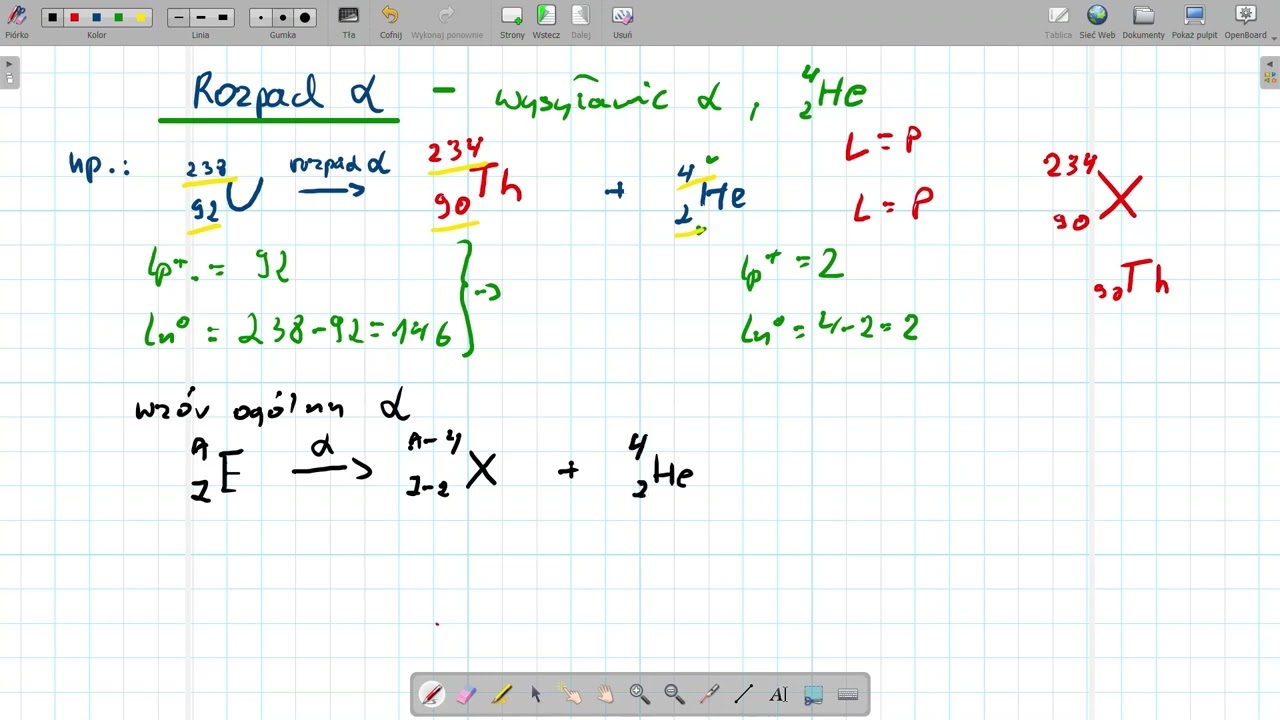 Piórko Kolor Linia Gumka Tła Cofnij Wykonaj ponownie Strony Wstecz Dalej Usuń Tablica Sieć Web Dokumenty Pokaż pulpit OpenBoard
Rozpad α - wysyłanie α, ⁴₂He
L = P
np.: ²³⁸₉₂U rozpad α → ²³⁴₉₀Th + ⁴₂He
L = P
²³⁴₉₀X
lp⁺. = 92
lp⁺ = 2
₉₀Th
ln⁰ = 238-92=146 } →
ln⁰ = 4-2=2
wzór ogólny α
ᴬ_Z E α → ᴬ⁻⁴_Z₋₂ X + ⁴₂He
AI